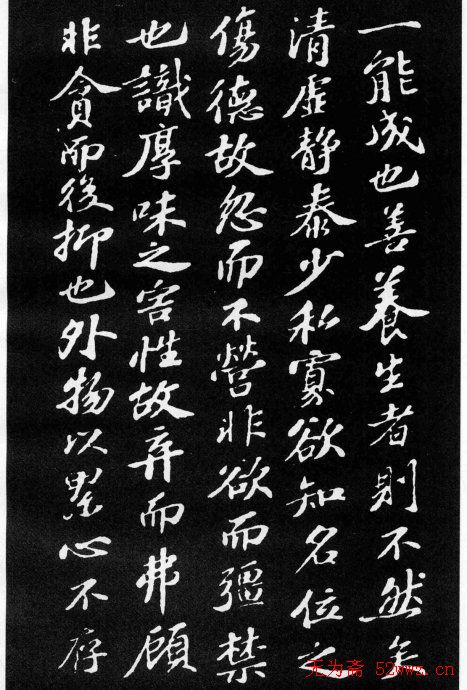 一能成也善養生者則不然矣
清虛靜泰少私寡欲知名位之
傷德故忽而不營非欲而彊禁
也識厚味之害性故弃而弗顧
非貪而後抑也外物以累心不存
无为斋 52wwz.cn